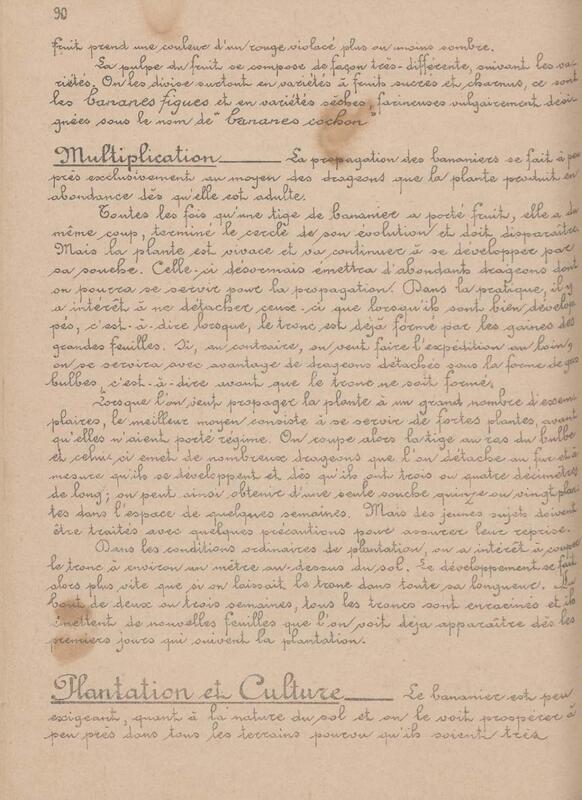 90
fruit prend une couleur d'un rouge violacé plus ou moins sombre.
La pulpe du fruit se compose de façon très-différente, suivant les va-
riétés. On les divise surtout en variétés à fruits sucrés et charnus, ce sont
les bananes figues et en variétés sèches, farineuses vulgairement dési-
gnées sous le nom de "bananes cochon"
Multiplication ——— La propagation des bananiers se fait à peu
près exclusivement au moyen des drageons que la plante produit en
abondance dès qu'elle est adulte.
Toutes les fois qu'une tige de bananier a porté fruit, elle a du
même coup, terminé le cercle de son évolution et doit disparaître
Mais la plante est vivace et va continuer à se développer par
sa souche. Celle-ci désormais émettra d'abondants drageons dont
on pourra se servir pour la propagation. Dans la pratique, il y
a intérêt à ne détacher ceux-ci que lorsqu'ils sont bien dévelop-
pés, c'est-à-dire lorsque, le tronc est déjà formé par les gaines des
grandes feuilles. Si, au contraire, on veut faire l'expédition au loin,
on se servira avec avantage de drageons détachés sous la forme de gros
bulbes, c'est-à-dire avant que le tronc ne soit formé.
Lorsque l'on veut propager la plante à un grand nombre d'exem-
plaires, le meilleur moyen consiste à se servir de fortes plantes, avant
qu'elles n'aient porté régime. On coupe alors la tige au ras du bulbe
et celui-ci émet de nombreux drageons que l'on détache au fur et à
mesure qu'ils se développent et dès qu'ils ont trois ou quatre décimètres
de long; on peut ainsi obtenir d'une seule souche quinze ou vingt plan-
tes dans l'espace de quelques semaines. Mais des jeunes sujets doivent
être traités avec quelques précautions pour assurer leur reprise.
Dans les conditions ordinaires de plantation, on a intérêt à couper
le tronc à environ un mètre au-dessus du sol. Le développement se fait
alors plus vite que si on laissait le tronc dans toute sa longueur. Au
bout de deux ou trois semaines, tous les troncs sont enracinés et ils
émettent de nouvelles feuilles que l'on voit déjà apparaître dès les
premiers jours qui suivent la plantation.
Plantation et Culture ——— Le bananier est peu
exigeant, quant à la nature du sol et on le voit prospérer à
peu près dans tous les terrains pourvu qu'ils soient très